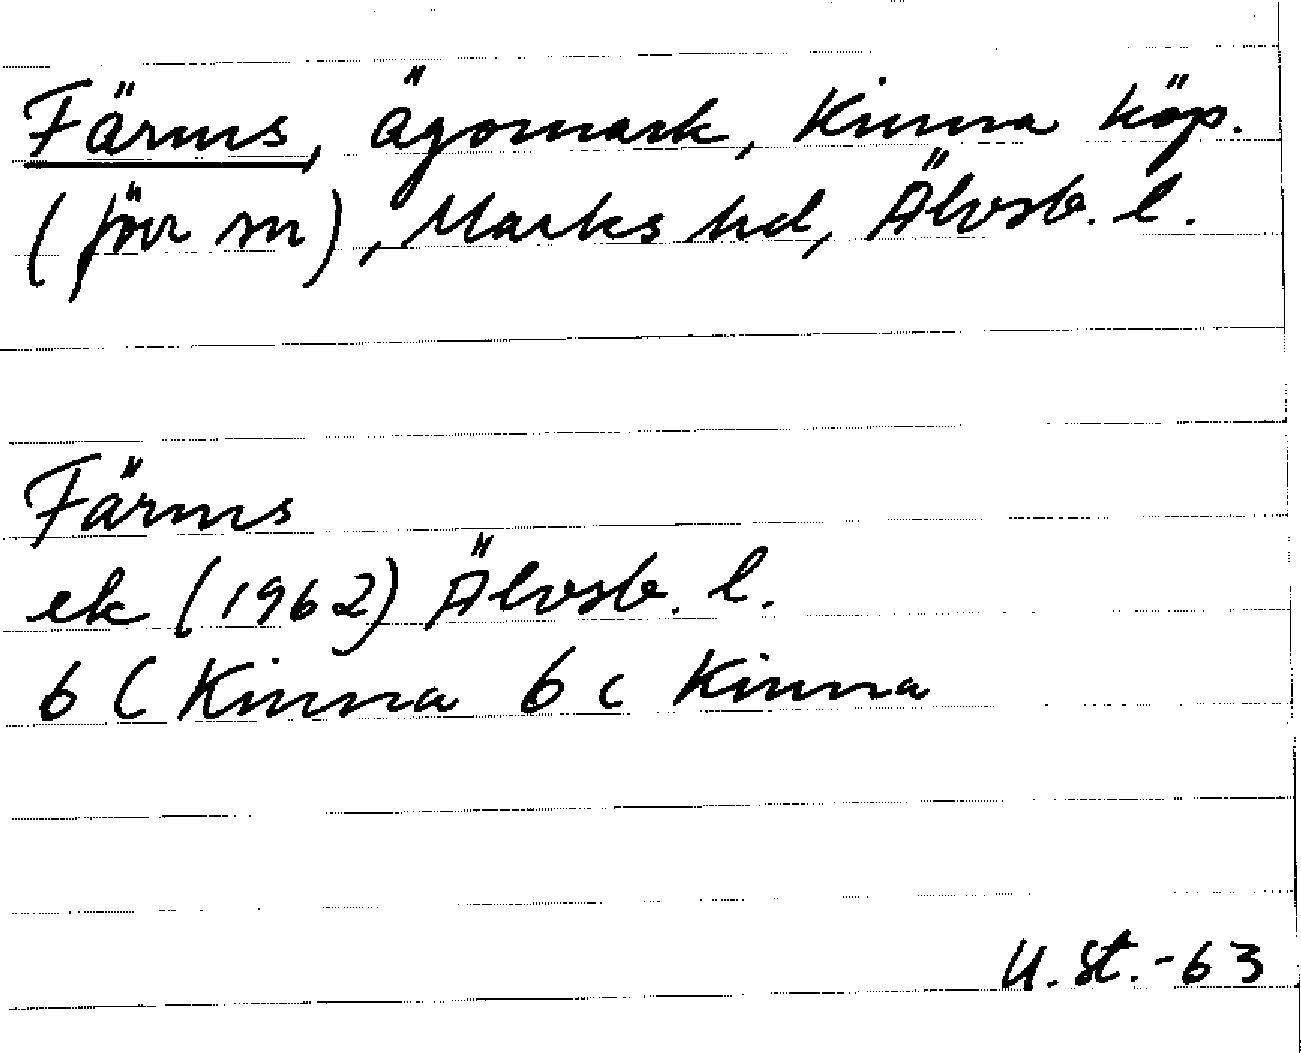 Färms, ägomark, Kinna köp.
(förr sn), Marks hd, Älvsb. l.
Färms
ek (1962) Älvsb. l.
6 C Kinna 6 c Kinna
U.St.-63